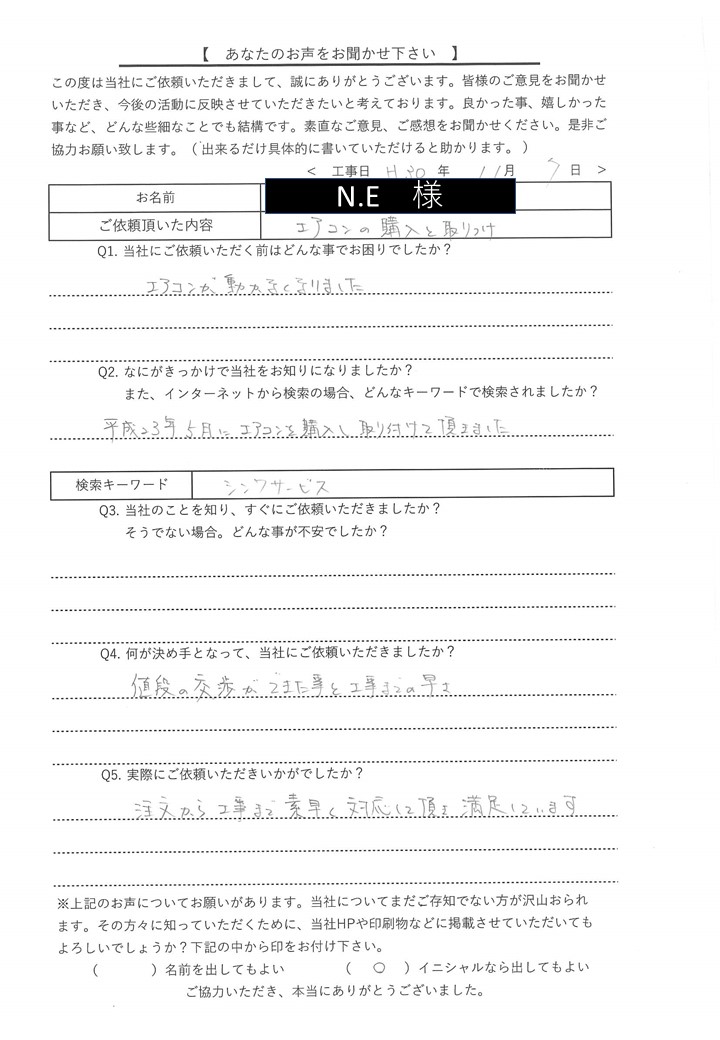 【 あなたのお声をお聞かせ下さい 】
この度は当社にご依頼いただきまして、誠にありがとうございます。皆様のご意見をお聞かせ
いただき、今後の活動に反映させていただきたいと考えております。良かった事、嬉しかった
事など、どんな些細なことでも結構です。素直なご意見、ご感想をお聞かせください。是非ご
協力お願い致します。（出来るだけ具体的に書いていただけると助かります。）
< 工事日 H30 年 11月 7日 >
お名前 N.E 様
ご依頼頂いた内容 エアコンの購入と取りつけ
Q1. 当社にご依頼いただく前はどんな事でお困りでしたか？
エアコンが動かなくなりました
Q2. なにがきっかけで当社をお知りになりましたか？
また、インターネットから検索の場合、どんなキーワードで検索されましたか？
平成23年5月にエアコンを購入し取り付けて頂きました
検索キーワード シンワサービス
Q3. 当社のことを知り、すぐにご依頼いただきましたか？
そうでない場合。どんな事が不安でしたか？
Q4. 何が決め手となって、当社にご依頼いただきましたか？
値段の交歩ができた事と工事までの早さ
Q5. 実際にご依頼いただきいかがでしたか？
注文から工事まで素早く対応して頂き満足しています
※上記のお声についてお願いがあります。当社についてまだご存知でない方が沢山おられ
ます。その方々に知っていただくために、当社HPや印刷物などに掲載させていただいても
よろしいでしょうか？下記の中から印をお付け下さい。
（ ）名前を出してもよい （ ○ ）イニシャルなら出してもよい
ご協力いただき、本当にありがとうございました。